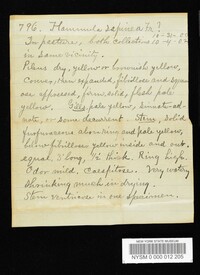 796. Flammula sapinea Fr.?
In pasture, both collections 10-31-05
in same vicinity. 10-4-07
Pileus dry, yellow or brownish yellow,
Convex, then expanded, fibrillose and squam-
ose appressed, firm, solid, flesh pale
yellow. Gills pale yellow, sinuate ad-
nate, or some decurrent. Stem, solid
pale yellow,
below fibrillose yellow inside and out.
equal. 3' long, ½ thick. Ring high.
Odor mild. Caespitose. Very watery
Shrinking much in drying.
Stem ventricose in one specimen.
NEW YORK STATE MUSEUM
NYSM 0 000 012 205